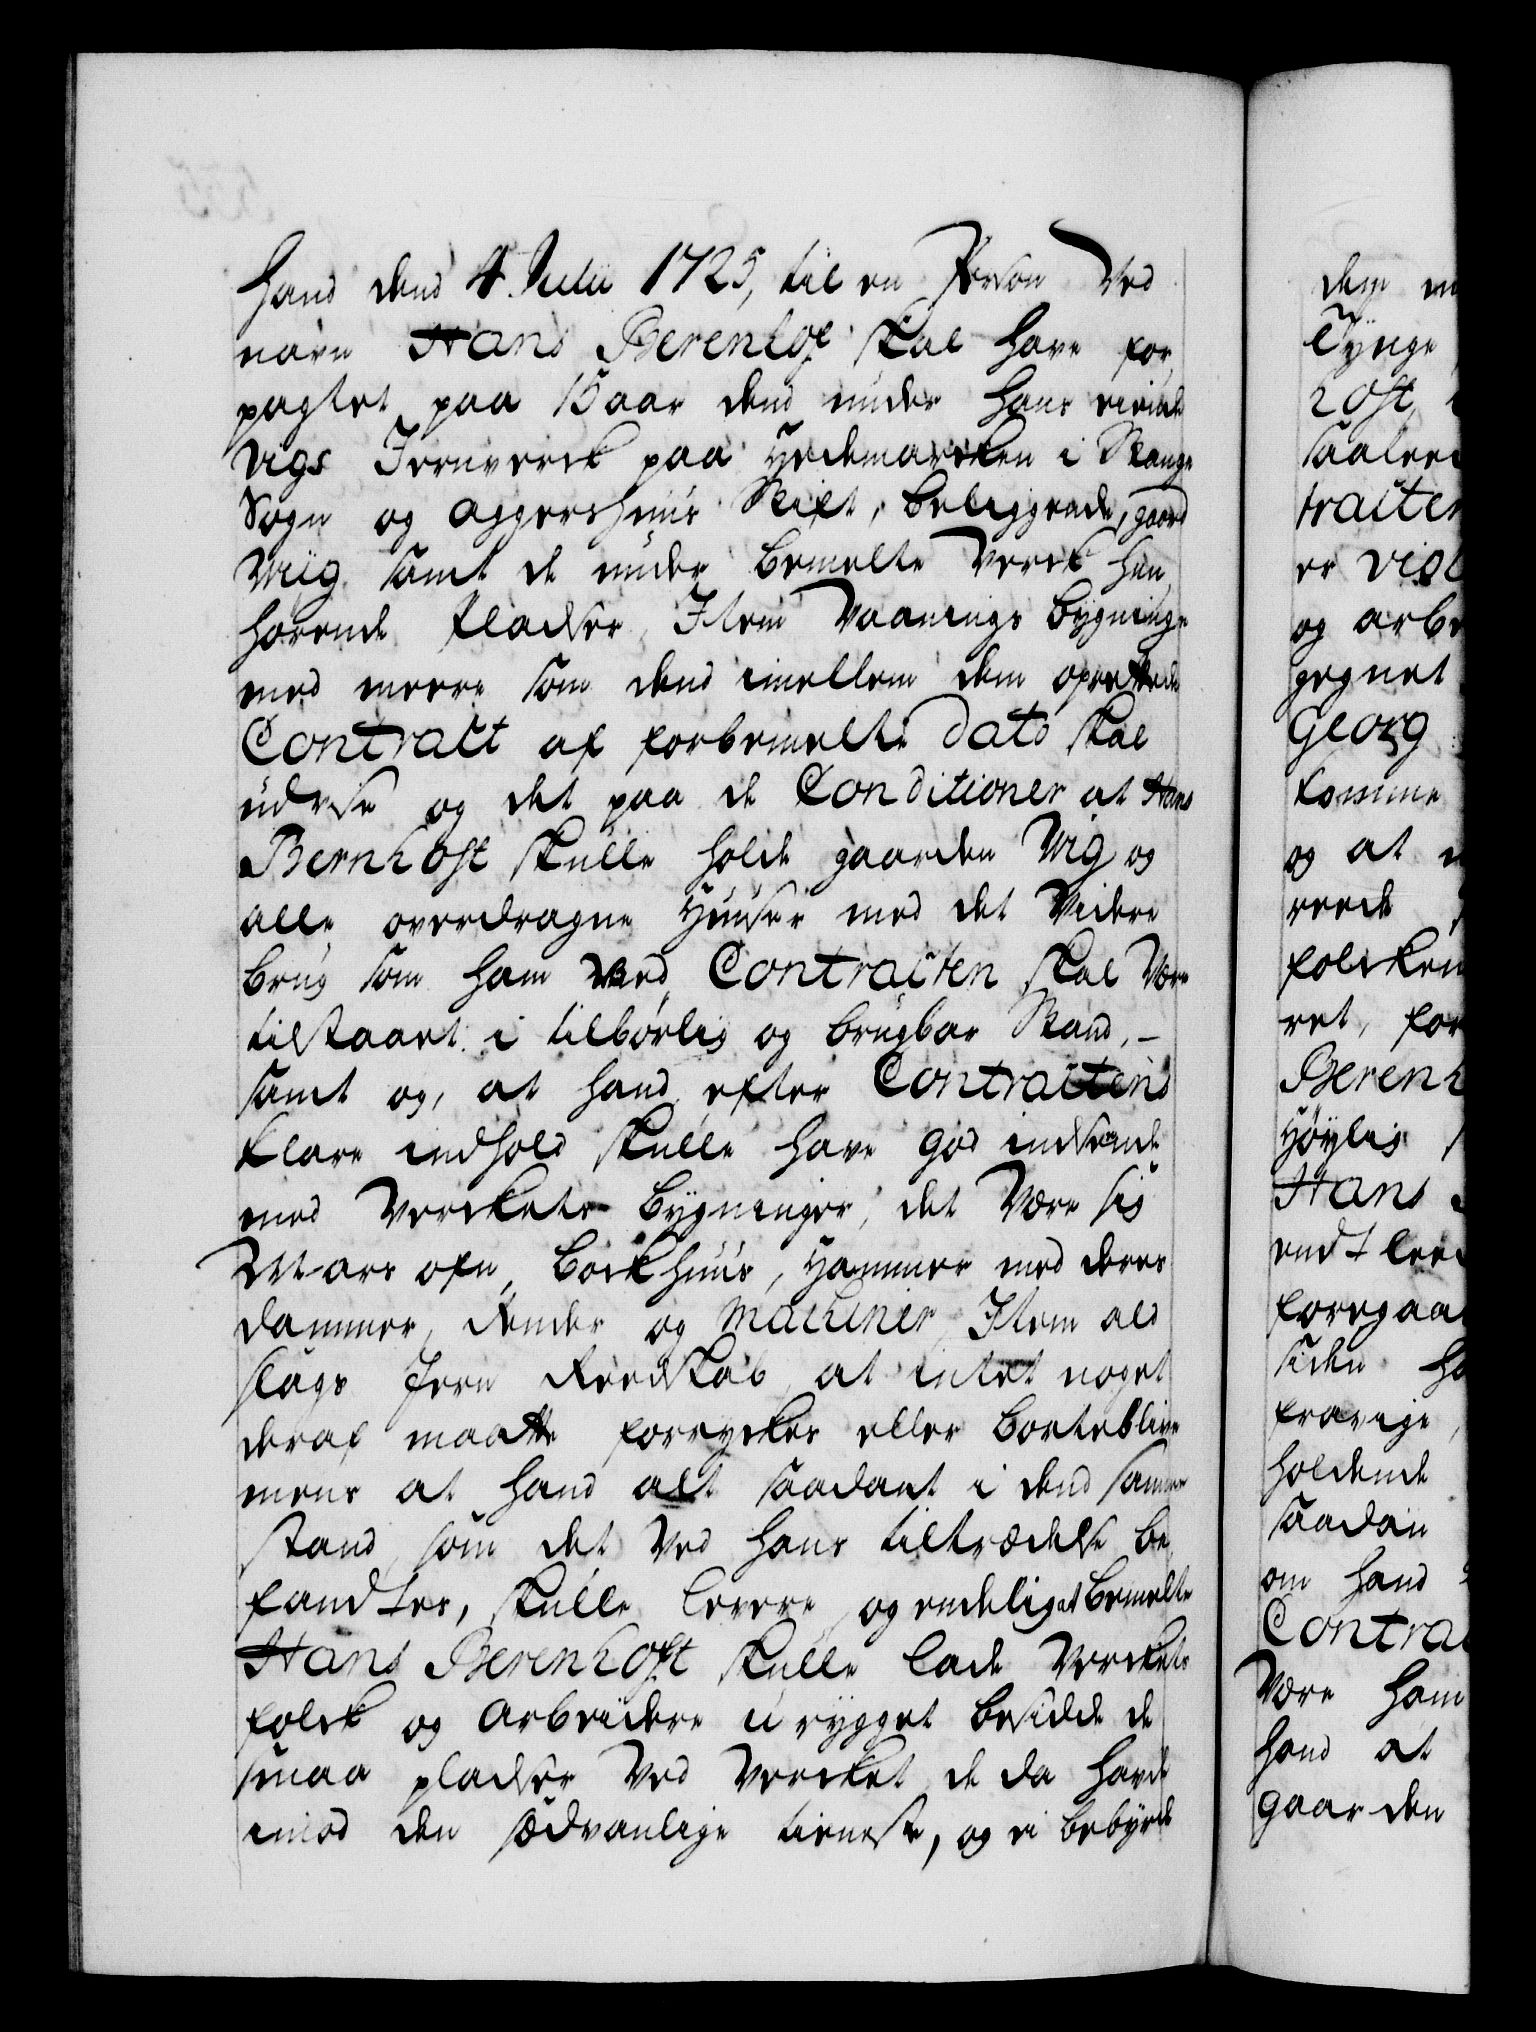 hand dend 4 Julii 1725, til en Person Ved
navn Hans Berenhoft skal have for
pagtet paa 15 aar dend under hans
Vigs Jernverck paa Hedemarcken i Stange
Sogn og Aggershuus Stift, beliggende, gaard
Wiig samt de under bemelte Verck hen
hørende Pladser, Item Vaanings bygninge
med meere som dend imellem dem oprettede
Contract af forbemelte Dato skal
udvise og det paa de Conditioner at Hans
Bernhoft skulle holde gaarden Wig og
alle overdragne Huuser med det Videre
brug som ham Ved Contracten skal Være
tilstaaet i tilbørlig og brugbar Stand, –
samt og, at hand efter Contractens
klare indhold skulle have god indseende
med Verckets bygninger, det Være sig
Mars ofn, Bockhuus, Hammer med deres
dammer, Render og Machiner, Item ald
slags Jern Reedskab, at intet noget
deraf maatte forrycker eller borteblive
mens at hand alt saadant i dend samme
stand, som det Ved hans tiltrædelse be
fandtes, skulle levere, og endeligst bemelte
Hans Berenhoft skulle lade Verckets
folck og Arbeidere urygget besidde de
smaa pladser Ved Vercket de da havde
imod den sædvanlige tieneste, og ei bebyrde
dem
Tynge
hoft,
saalee
tracter
er vist
og arbe
gegnet
Georg
komme
og at
reede
folcken
ret, for
Berenh
Høylig
Hans
endt
foregaa
siden
fravige,
holdende
saadan
om hand
Contrac
Være ham
hand at
gaarden